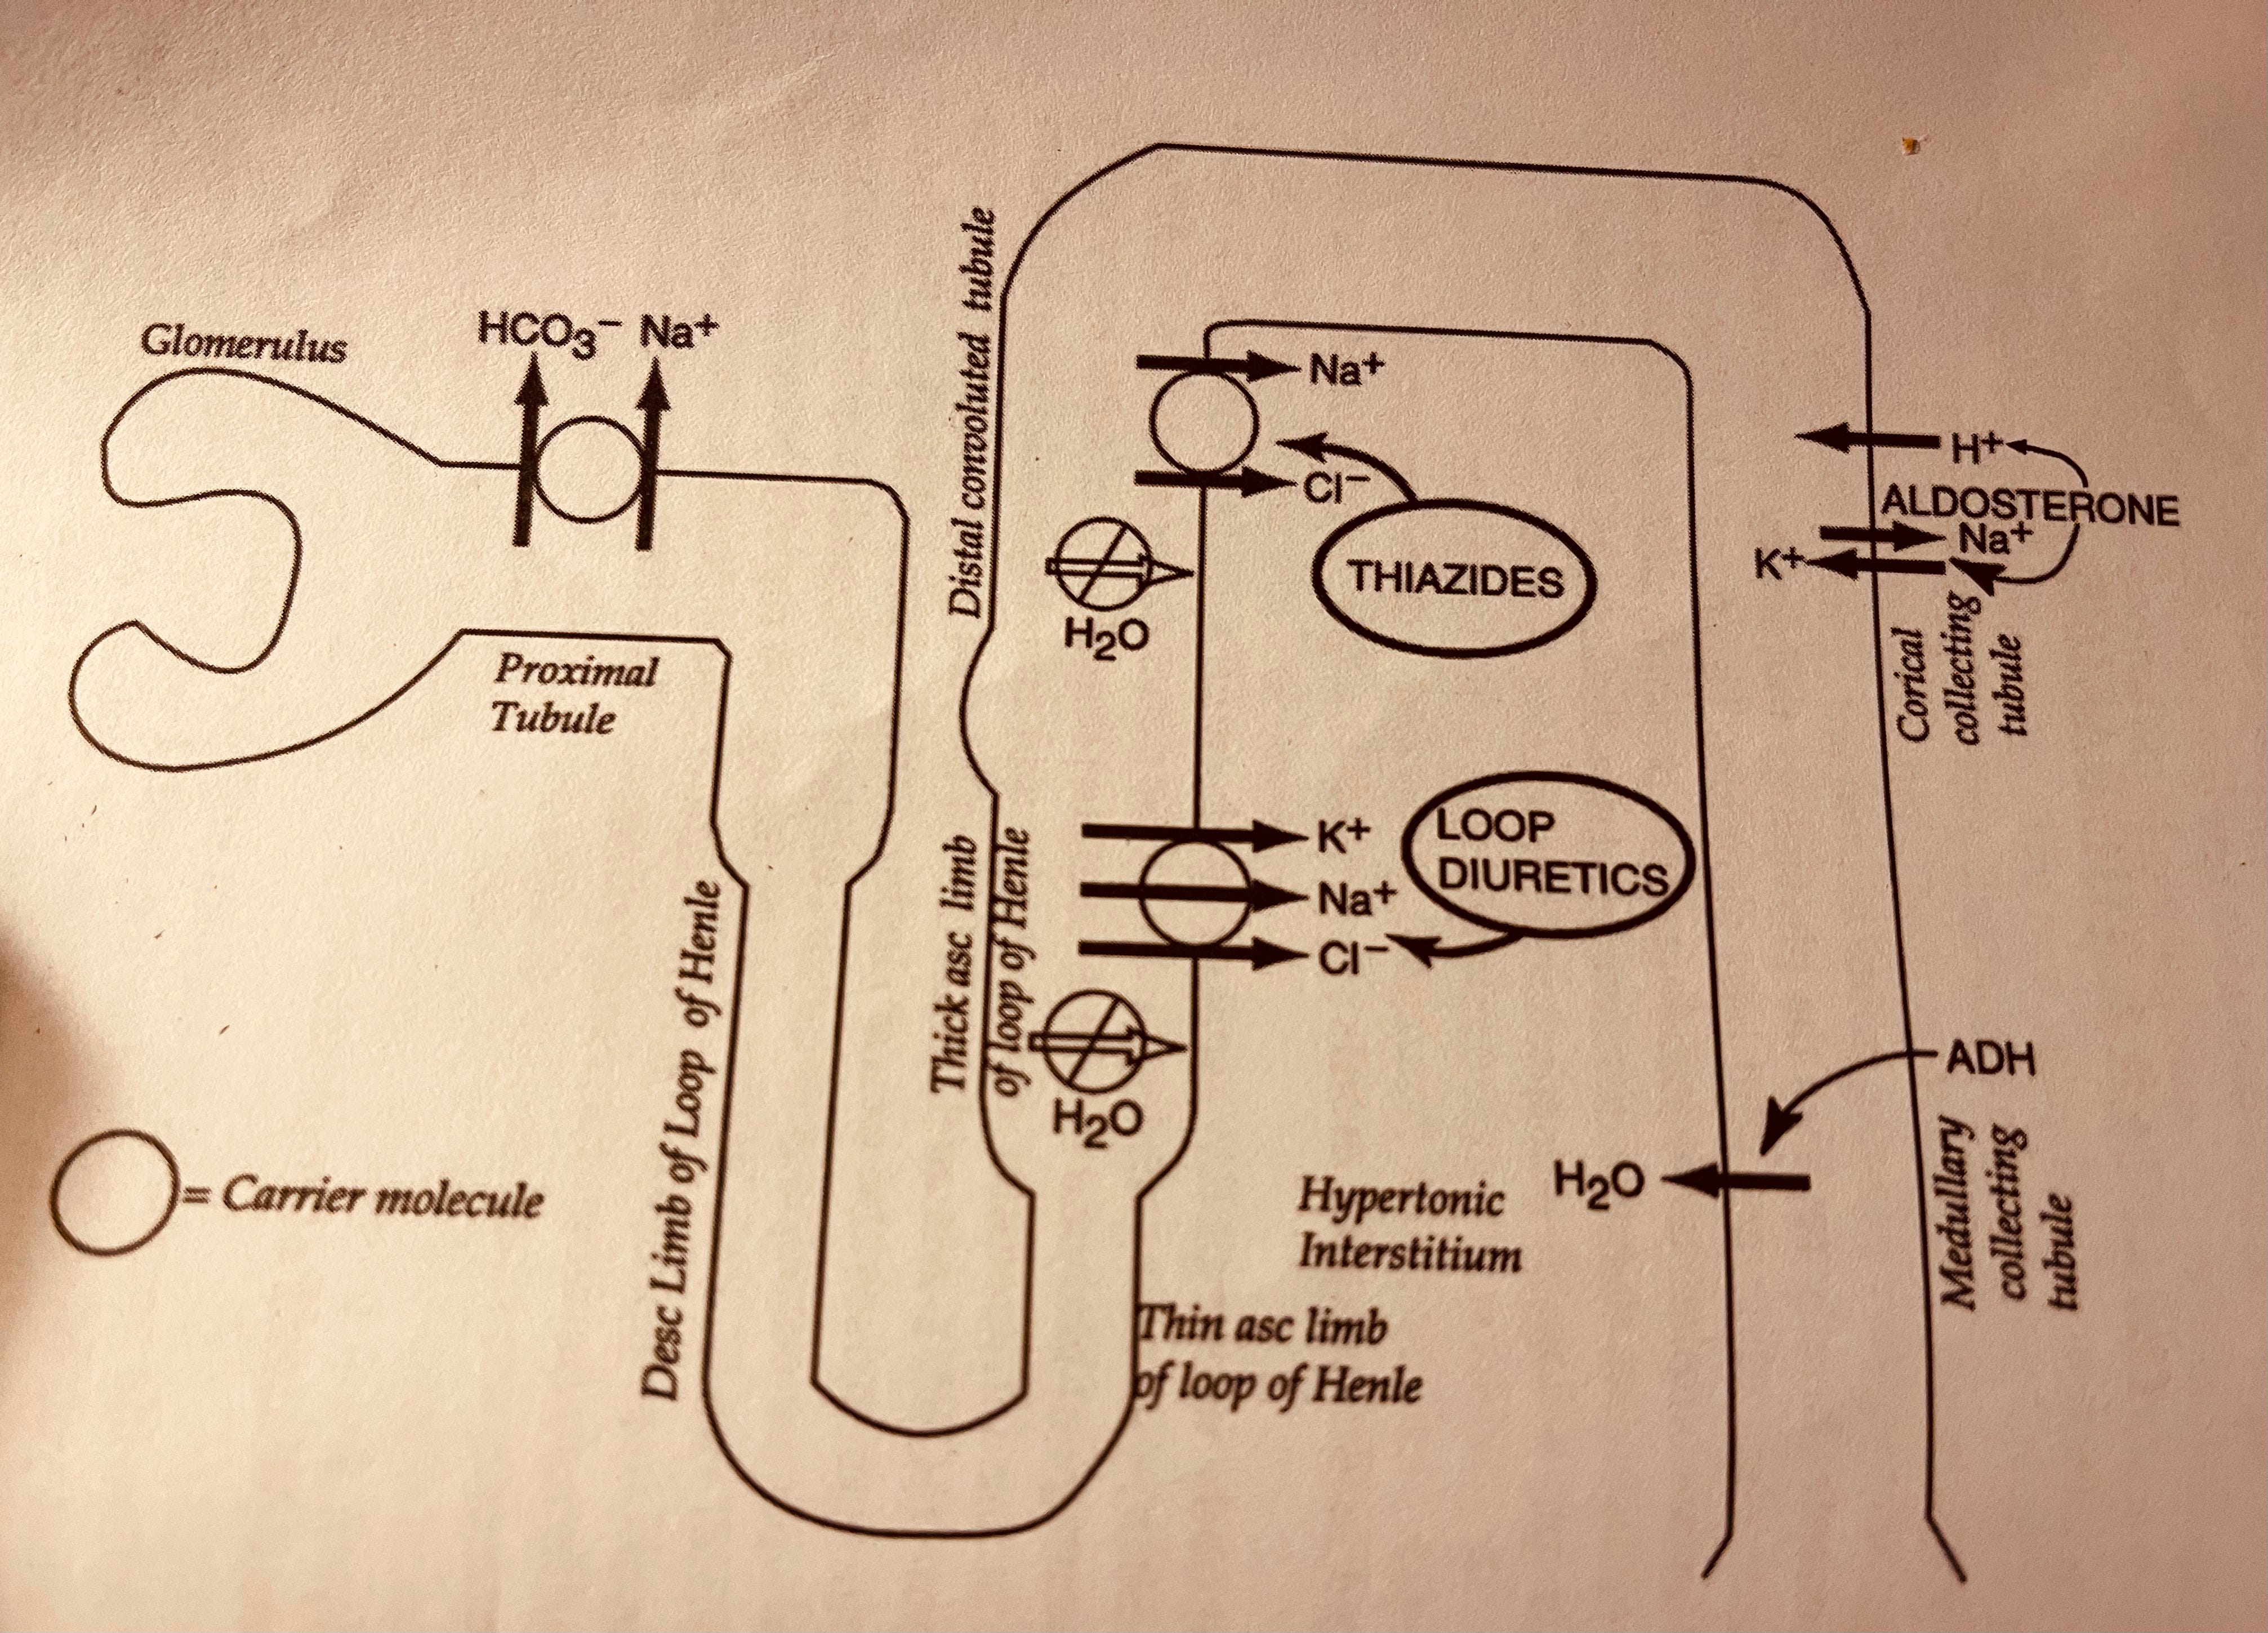 Glomerulus
HCO₃⁻ Na⁺
Proximal
Tubule
Desc Limb of Loop of Henle
= Carrier molecule
Distal convoluted tubule
Na⁺
Cl⁻
THIAZIDES
H₂O
Thick asc limb
of loop of Henle
K⁺
Na⁺
Cl⁻
LOOP
DIURETICS
H₂O
Hypertonic
Interstitium
Thin asc limb
of loop of Henle
H⁺
ALDOSTERONE
Na⁺
K⁺
Corical
collecting
tubule
ADH
H₂O
Medullary
collecting
tubule